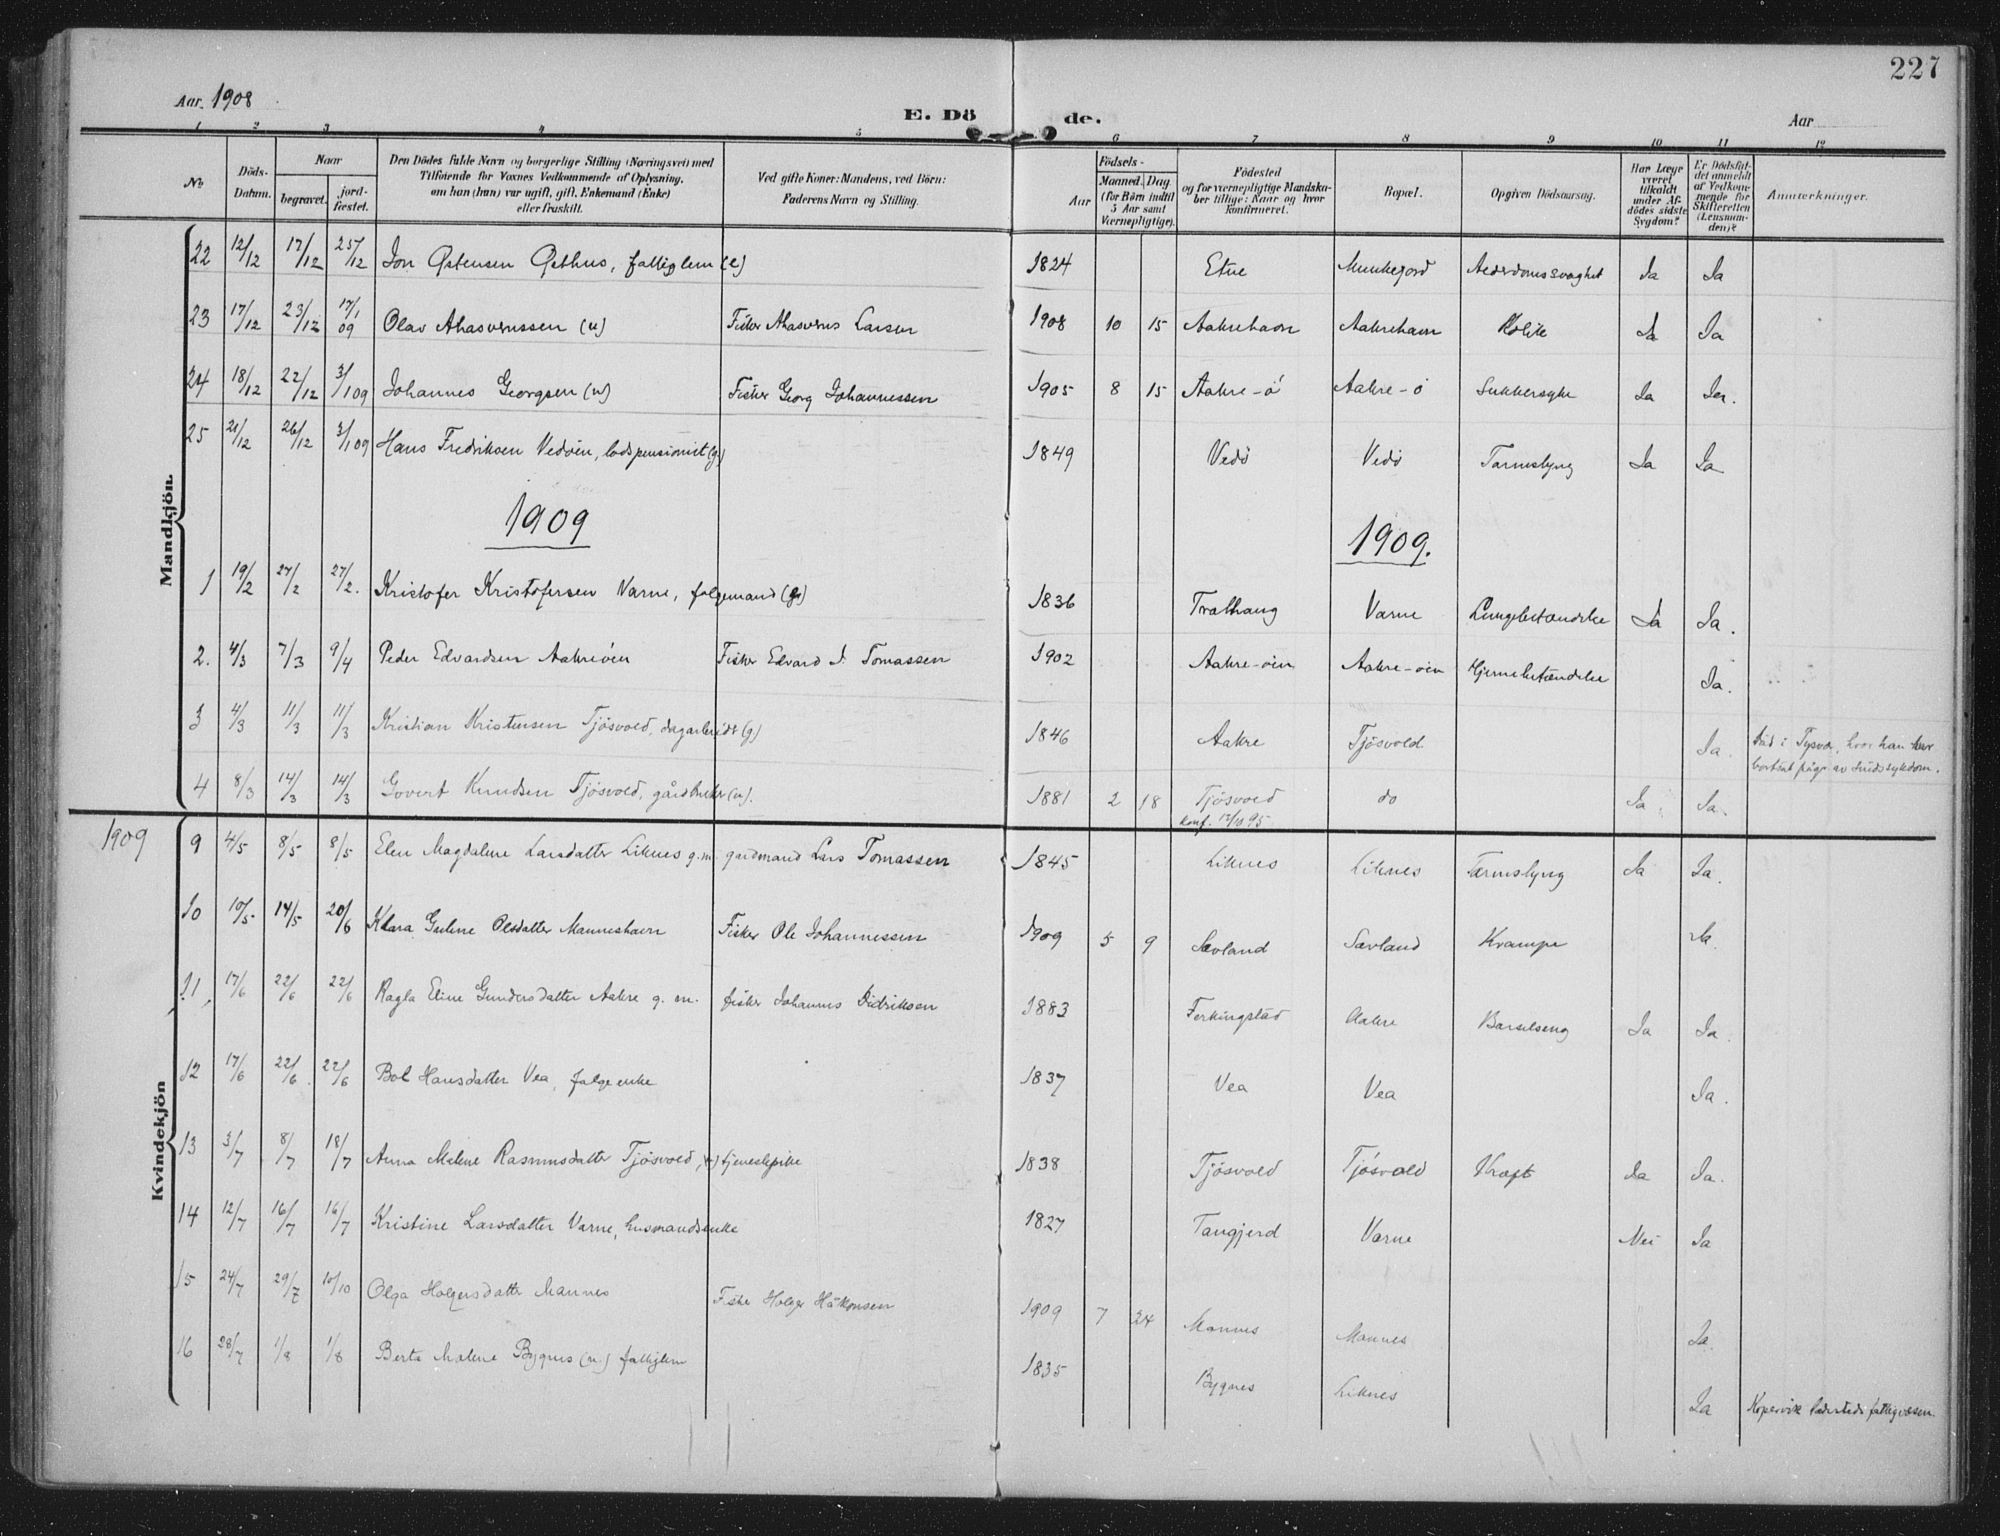 227
Aar 1908
E. Dö de.
Aar
1 2 3 4 5 6 7 8 9 10 11 12
No
Döds-Datum.
Naar
begravet.
jord-fæstet.
Den Dödes fulde Navn og borgerlige Stilling (Næringsvei) med
Tilföiende for Voxnes Vedkommende af Oplysning,
om han (hun) var ugift, gift, Enkemand (Enke)
eller fraskilt.
Ved gifte Koner: Mandens, ved Börn:
Faderens Navn og Stilling.
Födsels-
Aar
Maaned. Dag.
(for Börn indtil
5 Aar samt
Værnepligtige).
Födested
og for værnepligtige Mandska-
ber tillige: Naar og hvor
konfirmeret.
Bopæl.
Opgiven Dödsaarsag.
Har Læge
været
tilkaldt
under Af-
dödes sidste
Sygdom?
Er Dödsfal-
det anmeldt
af Vedkom-
mende for
Skifteretten
(Lensman-
den)?
Anmærkninger.
Mandkjön.
22 12/12 17/12 25/12 Jon Östensen Østhus, fattiglem (e) 1824 Etne Munkejord Alderdomssvaghet Ja Ja
23 17/12 23/12 17/1 09 Olav Ahasverussen (u) Fisker Ahasverus Larsen 1908 10 15 Aakrehavn Aakrehavn Kolik Ja Ja
24 18/12 22/12 3/1 09 Johannes Georgsen (u) Fisker Georg Johannessen 1905 8 15 Aakre-ö Aakre-ö Sukkersyke Ja Ja.
25 21/12 26/12 3/1 09 Hans Fredriksen Vedöen, lodspensionist (g) 1849 Vedö Vedö Tarmslyng Ja Ja
1909 1909.
1 19/2 27/2 27/2. Kristofer Kristofersen Varne, folgemand (g) 1836 Varne Lungebetændelse Ja Ja.
2. 4/3 7/3 9/4 Peder Edvardsen Aakreöen Fisker Edvard J. Tomassen 1902 Aakre-öen Aakre-öen Hjernebetændelse Ja.
3 4/3 11/3 11/3 Kristian Kristensen Tjösvold, dagarbeider (g) 1846 Aakre Tjösvold Ja. Död i Tysvær, hvor han var
bortsat pågr. av sindssykdom.
4 8/3 14/3 14/3 Govert Knudsen Tjösvold, gårdbruker (u). 1881 2 18 Tjösvold do Ja. Ja.
konf. 13/10 95
Kvindekjön
1909
9 4/5 8/5 8/5 Elen Magdalene Larsdatter Liknes g.m. gardmand Lars Tomassen 1845 Liknes Liknes Tarmslyng Ja Ja.
10 10/5 14/5 20/6 Klara Guline Olsdatter Manneshavn Fisker Ole Johannessen 1909 5 9 Sævland Sævland Krampe Ja.
11 17/6 22/6 22/6 Ragla Eline Gundersdatter Aakre g. m. fisker Johannes Didriksen 1883 Ferkingstad Aakre Barselseng Ja Ja.
12 17/6 22/6 22/6 Bol Hansdatter Vea, folgeenke 1837 Vea Vea Ja.
13 3/7 8/7 18/7 Anna Malene Rasmusdatter Tjösvold, (u) tjenestepike 1838 Tjösvold Tjösvold Kræft Ja Ja.
14 12/7 16/7 16/7 Kristine Larsdatter Varne, husmandsenke 1827 Tangjerd Varne Nei Ja
15 24/7 29/7 10/10 Olga Holgersdatter Mannes Fisker Holger Håkonsen 1909 7 24 Mannes Mannes Ja.
16 28/7 1/8 1/8 Berta Malene Bygnes (u.) fattiglem 1835 Bygnes Liknes Ja Kopervik ladesteds fattigvæsen.